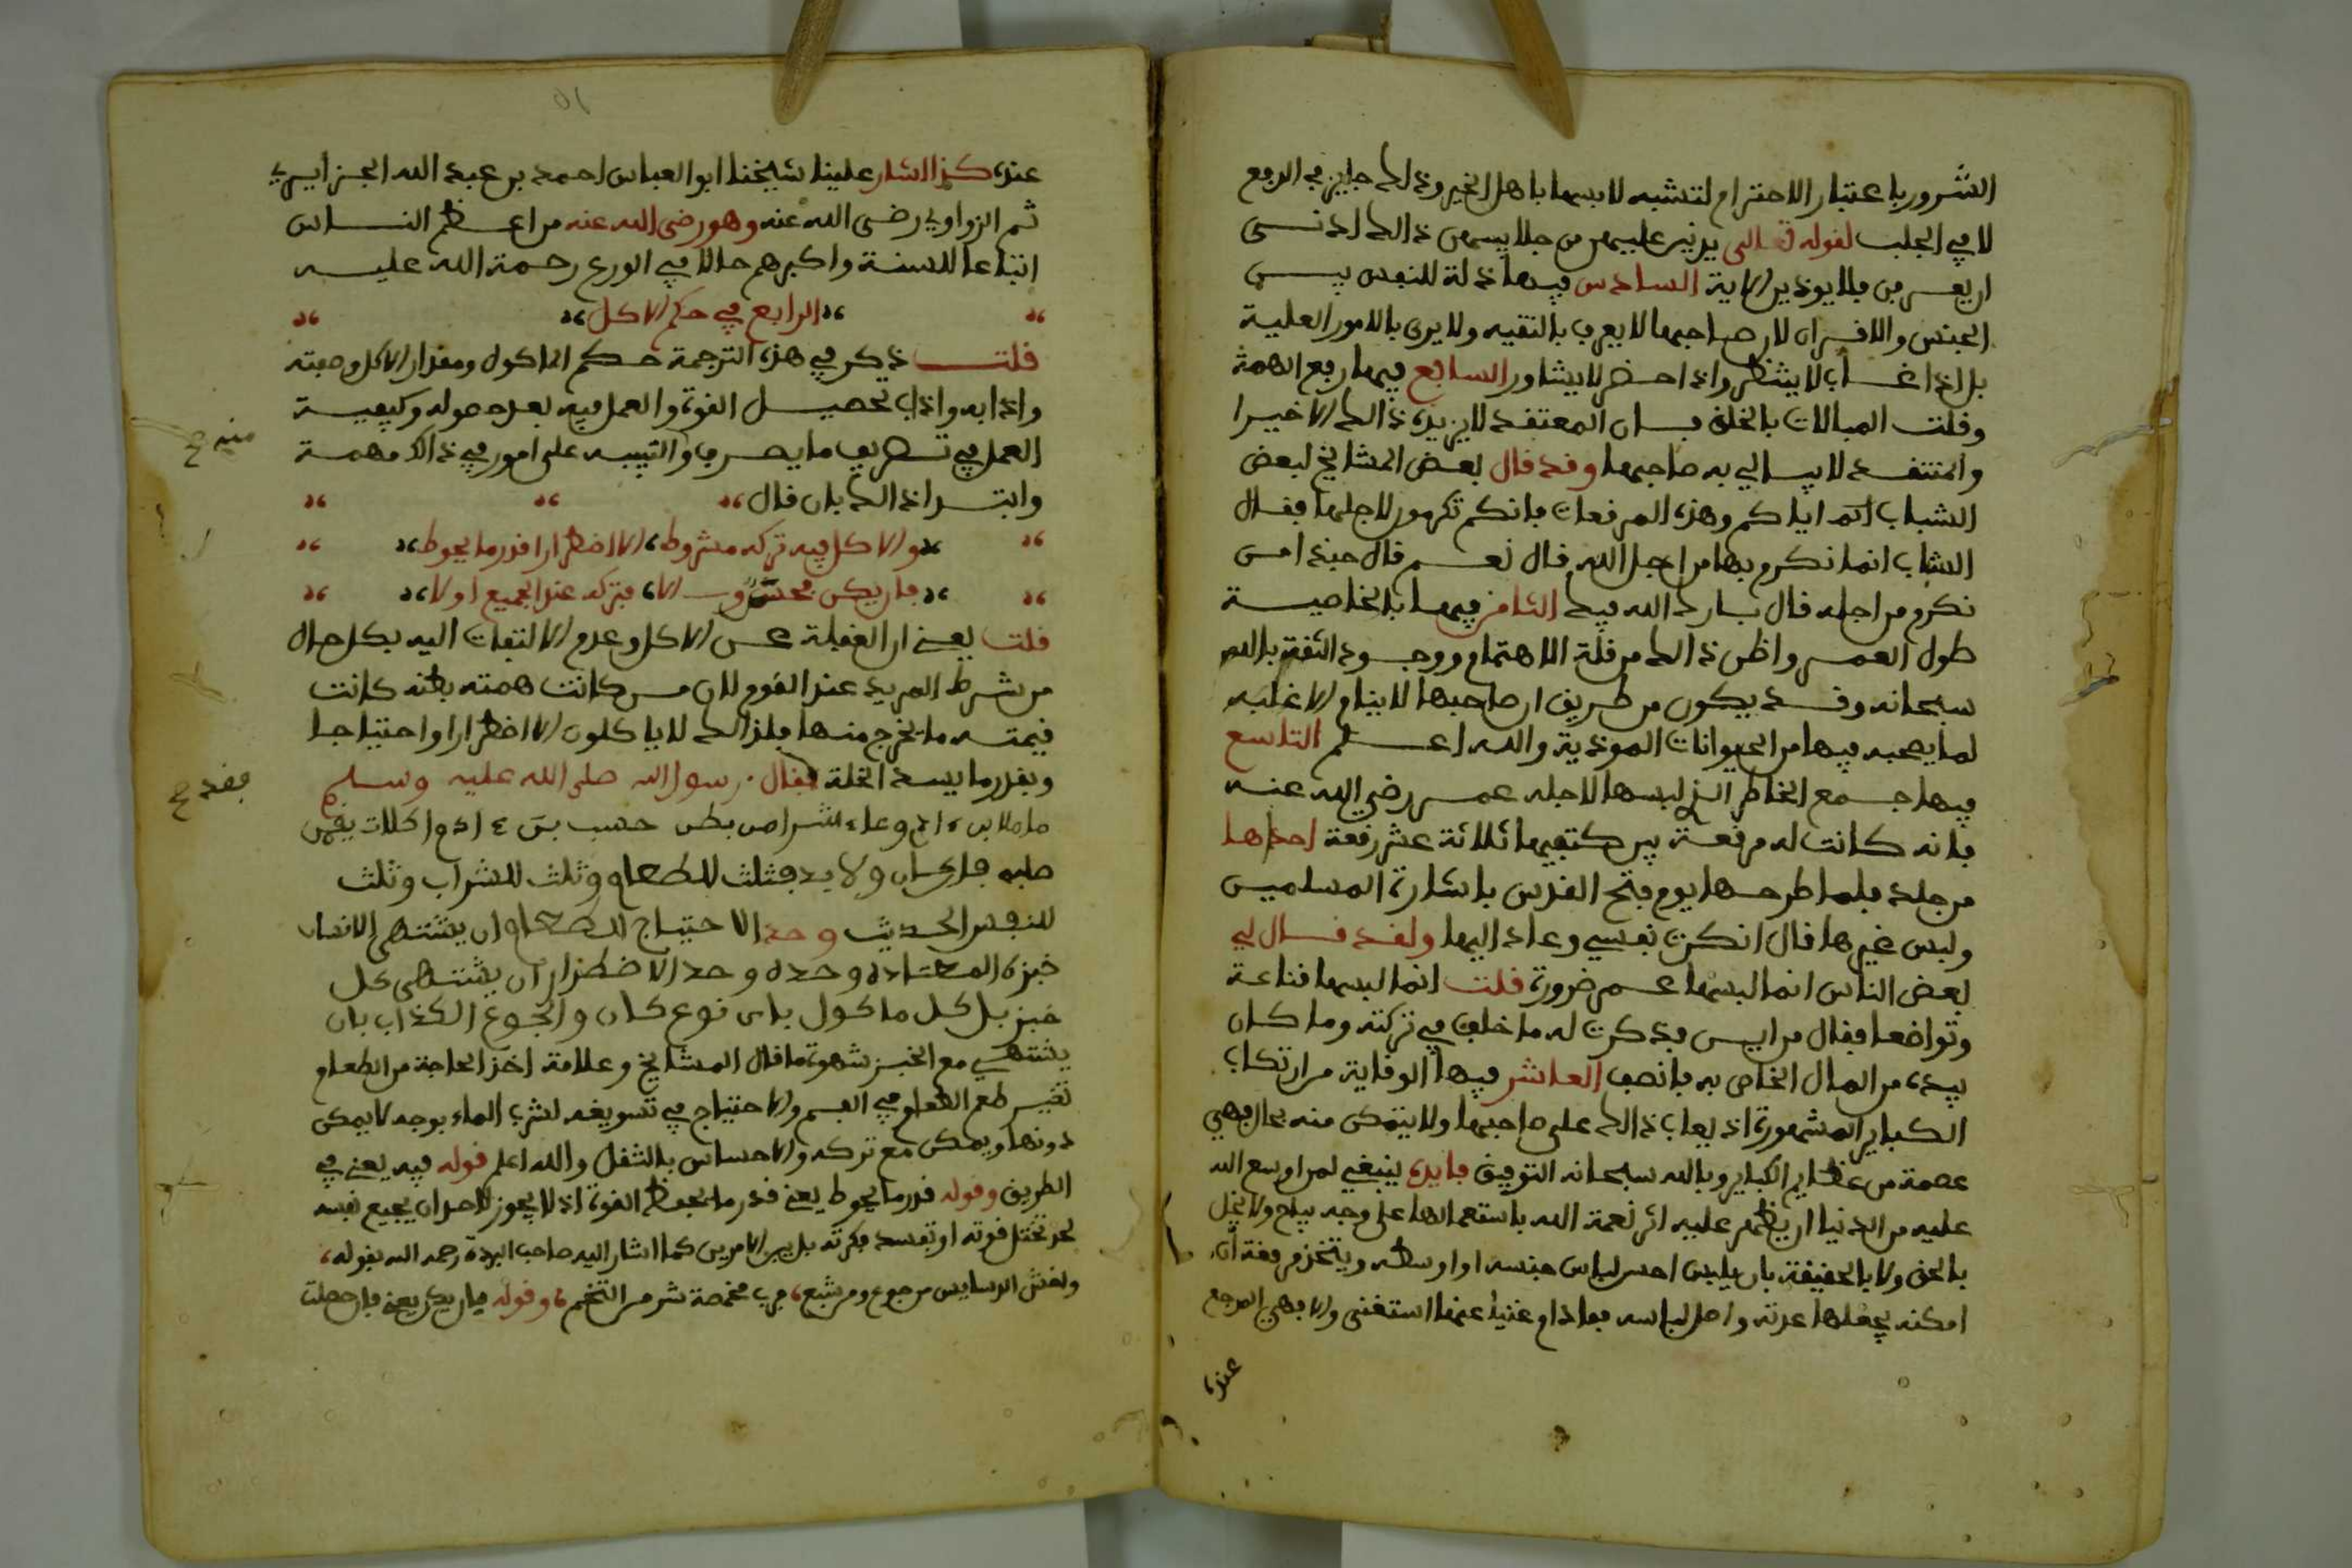 الشرور باعتبار الاحترام لتشبه لابسها باهل الخير وذلك جايز في الدفع
لا في الجلب لقوله تعالى يدنين عليهن من جلابيبهن ذالك ادنى
ان يعرفن فلا يوذين الاية السادس فيها ذلة للنفس بين
الجنس والاقران لان صاحبها لا يعرف بالتقية ولا يرى بالامور العلية
بل اذا غاب لا ينتظر واذا حضر لا يشاور السابع فيها رفع الهمة
وقلت المبالات بالخلق فان المعتقد لا يزيده ذالك الا خيرا
والمنتقد لا يبالي به صاحبها وقد قال بعض المشايخ لبعض
الشباب اياكم وهذه المرقعات فانكم تكرمون لاجلها فقال
الشاب انما نكرم بها من اجل الله قال نعم قال حبذا من
نكرم من اجله قال بارك الله فيك الثامن فيها بالخاصية
طول العمر واظن ذالك من قلة الاهتمام ووجود الثقة بالله
سبحانه وقد يكون من طريق ان صاحبها لا ينام الا غلبه
لما يصحبه فيها من الحيوانات الموذية والله اعلم التاسع
فيها جمع الخاطر الذي لبسها لاجله عمر رضي الله عنه
فانه كانت له مرقعة بين كتفيها ثلاثة عشر رقعة احداها
من جلد فلما طرحها يوم فتح القدس باشارة المسلمين
ولبس غيرها قال انكرت نفسي وعاد اليها ولقد قال لي
بعض الناس انما البسها عمر ضرورة قلت انما لبسها قناعة
وتواضعا فقال من اين فذكرت له ما خلف في تركته وما كان
بيده من المال الخاص به فانصف العاشر فيها الوقاية من ارتكاب
الكباير المشهورة اذ يعاب ذالك على صاحبها ولا يتمكن منه بحال فهي
عصمة من عظايم الكباير وبالله سبحانه التوفيق فايدة ينبغي لمن اوسع الله
عليه من الدنيا ان يظهر عليه اثر نعمة الله باستعمالها على وجه يباح ولا يخل
بالحق ولا بالحقيقة بان يلبس احسن لباس جنسه او اوسطه ويتخذ مرقعة ان
امكنه يجعلها عدته واصل لباسه فما دام غنيا عنها استغنى والا فهي المرجع
عنده
عنده كذا اشار علينا شيخنا ابو العباس احمد بن عبد الله الجزايري
ثم الزواوي رضى الله عنه وهو رضى الله عنه من اعظم الناس
اتباعا للسنة واكبرهم حالا في الورع رحمة الله عليه
الرابع في حكم الاكل
قلت ذكر في هذه الترجمة حكم الماكول ومقدار الاكل وصفته
واذابه واذاب تحصيل القوة والعمل فيه بعد حصوله وكيفية
العمل في تصريف ما يصرف والتنبيه على امور في ذالك مهمة
وابتدا ذالك بان قال
والاكل فيه تركه مشروط الا اضطرارا قدر ما يحوط
فان يكن فتركه عند الجميع اولا
قلت يعني ان الغفلة عن الاكل وعدم الالتفات اليه بكل حال
من شرط المريد عند القوم لان من كانت همته بطنه كانت
قيمته ما يخرج منها فلذالك لا ياكلون الا اضطرارا واحتياجا
وبقدر ما يسد الخلة فقال رسول الله صلى الله عليه وسلم
ما ملا ابن ادم وعاء شرا من بطن حسب ابن ءادم اكلات يقمن
صلبه فان كان ولا بد فثلث للطعام وثلث للشراب وثلث
للنفس الحديث وحد الاحتياج للطعام ان يشتهى الانسان
خبزه المعتاد وحده وحد الاضطرار ان يشتهى كل
خبز بل كل ماكول باى نوع كان والجوع الكذاب بان
يشتهي مع الخبز شهوة ما قال المشايخ وعلامة اخذ الحاجة من الطعام
تغير طعم الطعام في الفم والاحتياج في تسويغه لشرب الماء بوجه لا يمكن
دونها ويمكن مع تركه والاحساس بالثقل والله اعلم قوله فيه يعني في
الطريق وقوله قدر ما يحوط يعني قدر ما يحفظ القوة اذ لا يجوز لاحد ان يجيع نفسه
لحد تختل قوته او تفسد فكرته بل بين الامرين كما اشار اليه صاحب البردة رحمه الله بقوله
واخش الدسايس من جوع ومن شبع فرب مخمصة شر من التخم وقوله فان يكن يعني فان حصلت
منه ح
فقد ح